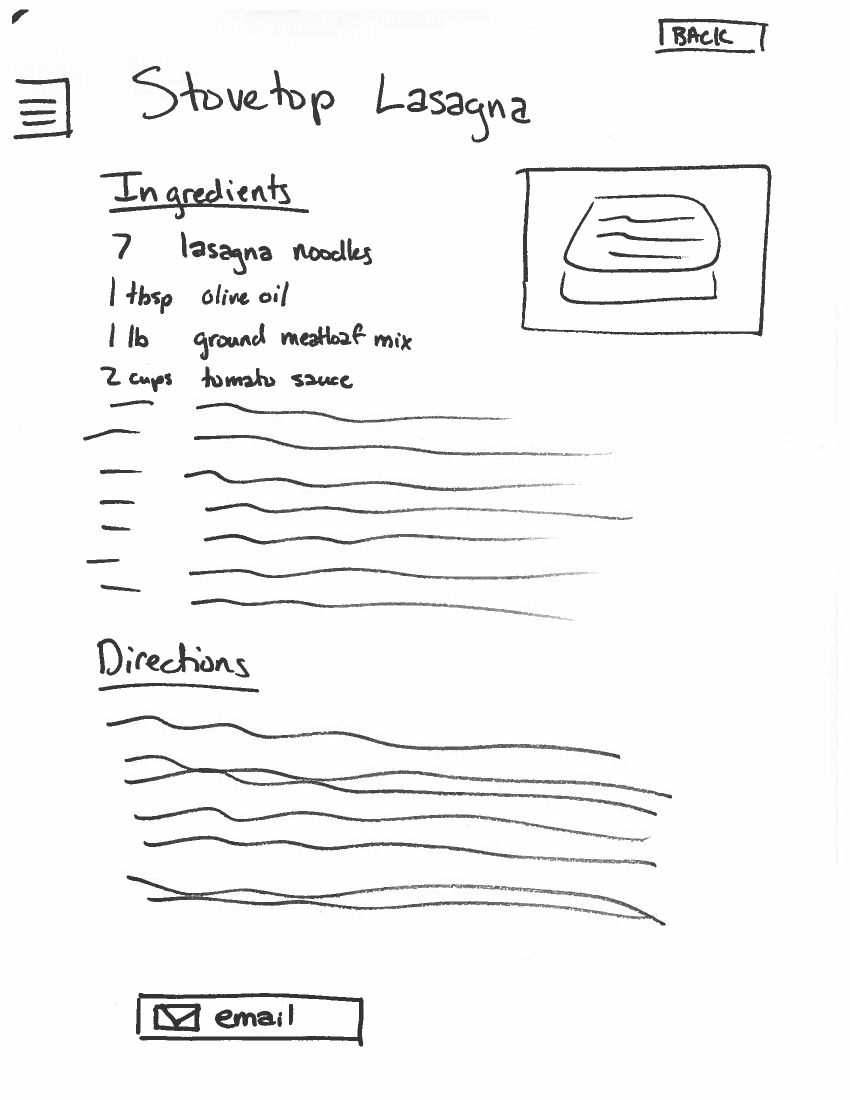 BACK
Stovetop Lasagna
Ingredients
7 lasagna noodles
1 tbsp olive oil
1 lb ground meatloaf mix
2 cups tomato sauce
Directions
email